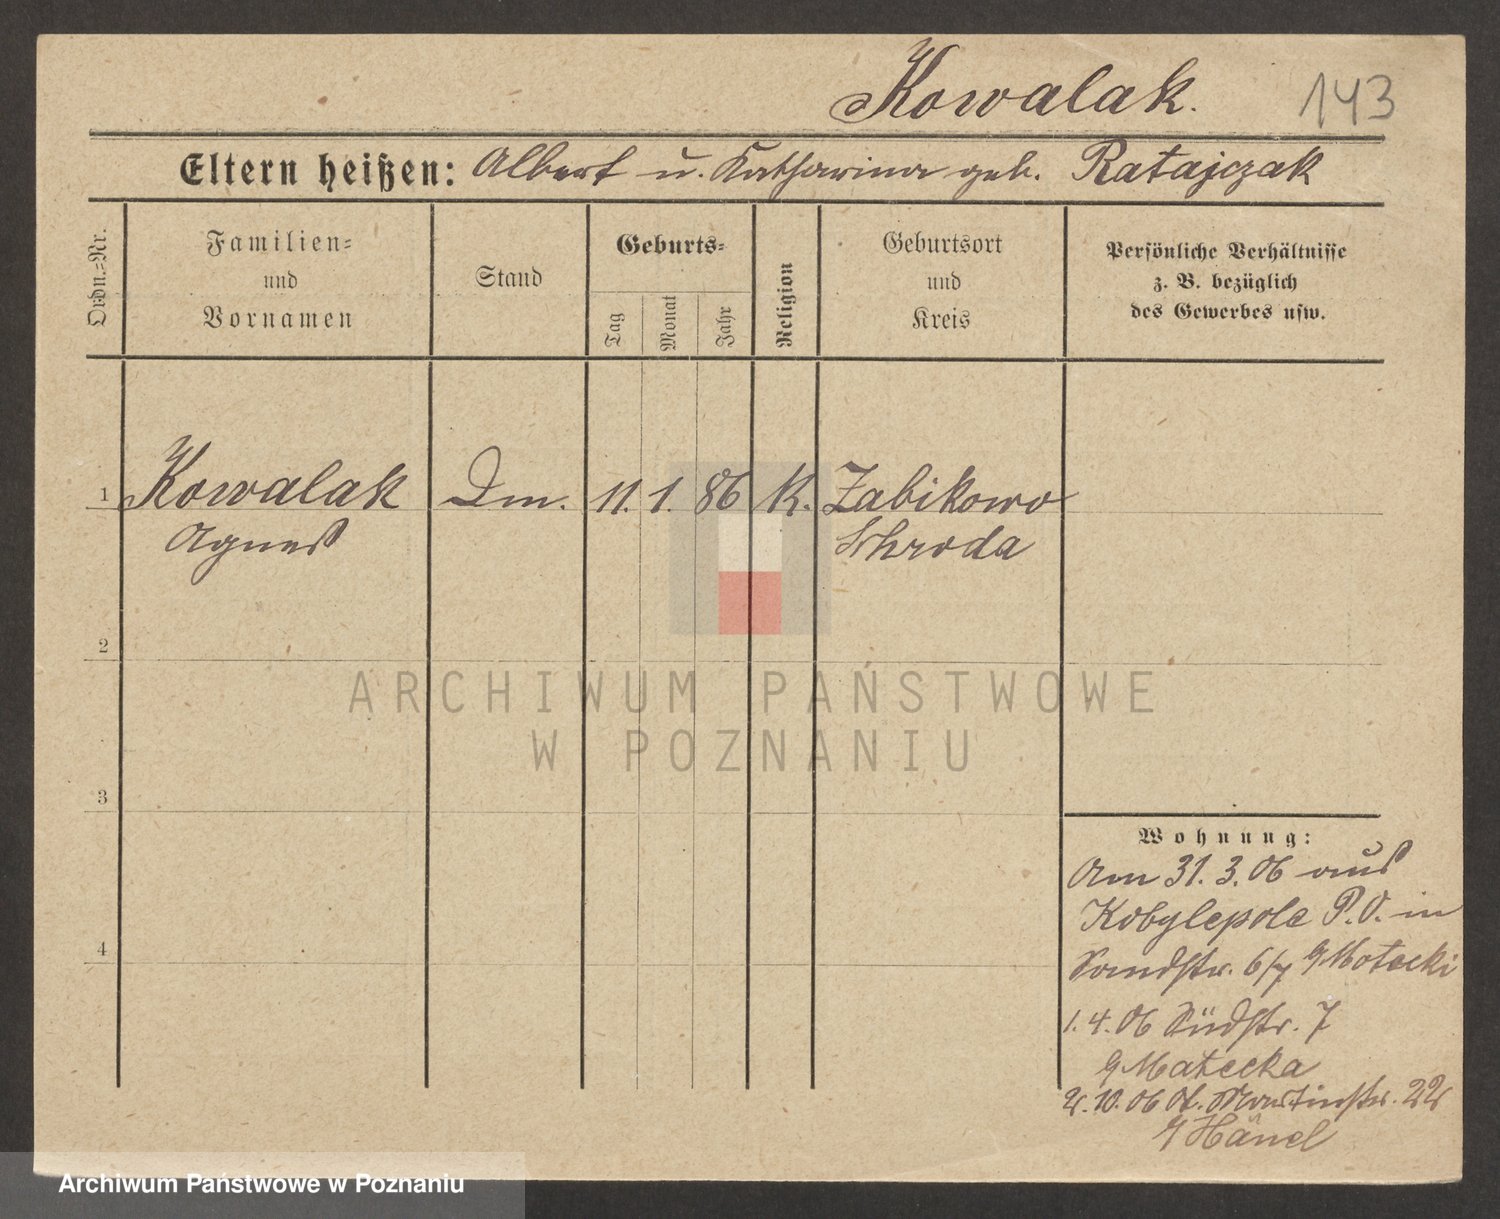 Kowalak. 143
Eltern heißen: Albert u. Katharina geb. Ratajczak
Ordn.=Nr.
Familien=
und
Vornamen
Stand
Geburts=
Tag
Monat
Jahr
Religion
Geburtsort
und
Kreis
Persönliche Verhältnisse
z. B. bezüglich
des Gewerbes usw.
1 Kowalak Dm. 11. 1. 86 K. Zabikowo
Agnes Schroda
2
3
4
Wohnung:
Am 31. 3. 06 aus
Kobylepole P.O. in
Sandstr. 6/7 Matecki
1. 4. 06 Südstr. 7
Matecka
2. 10. 06 St. Martinstr. 22
Hänel
ARCHIWUM PAŃSTWOWE
W POZNANIU
Archiwum Państwowe w Poznaniu